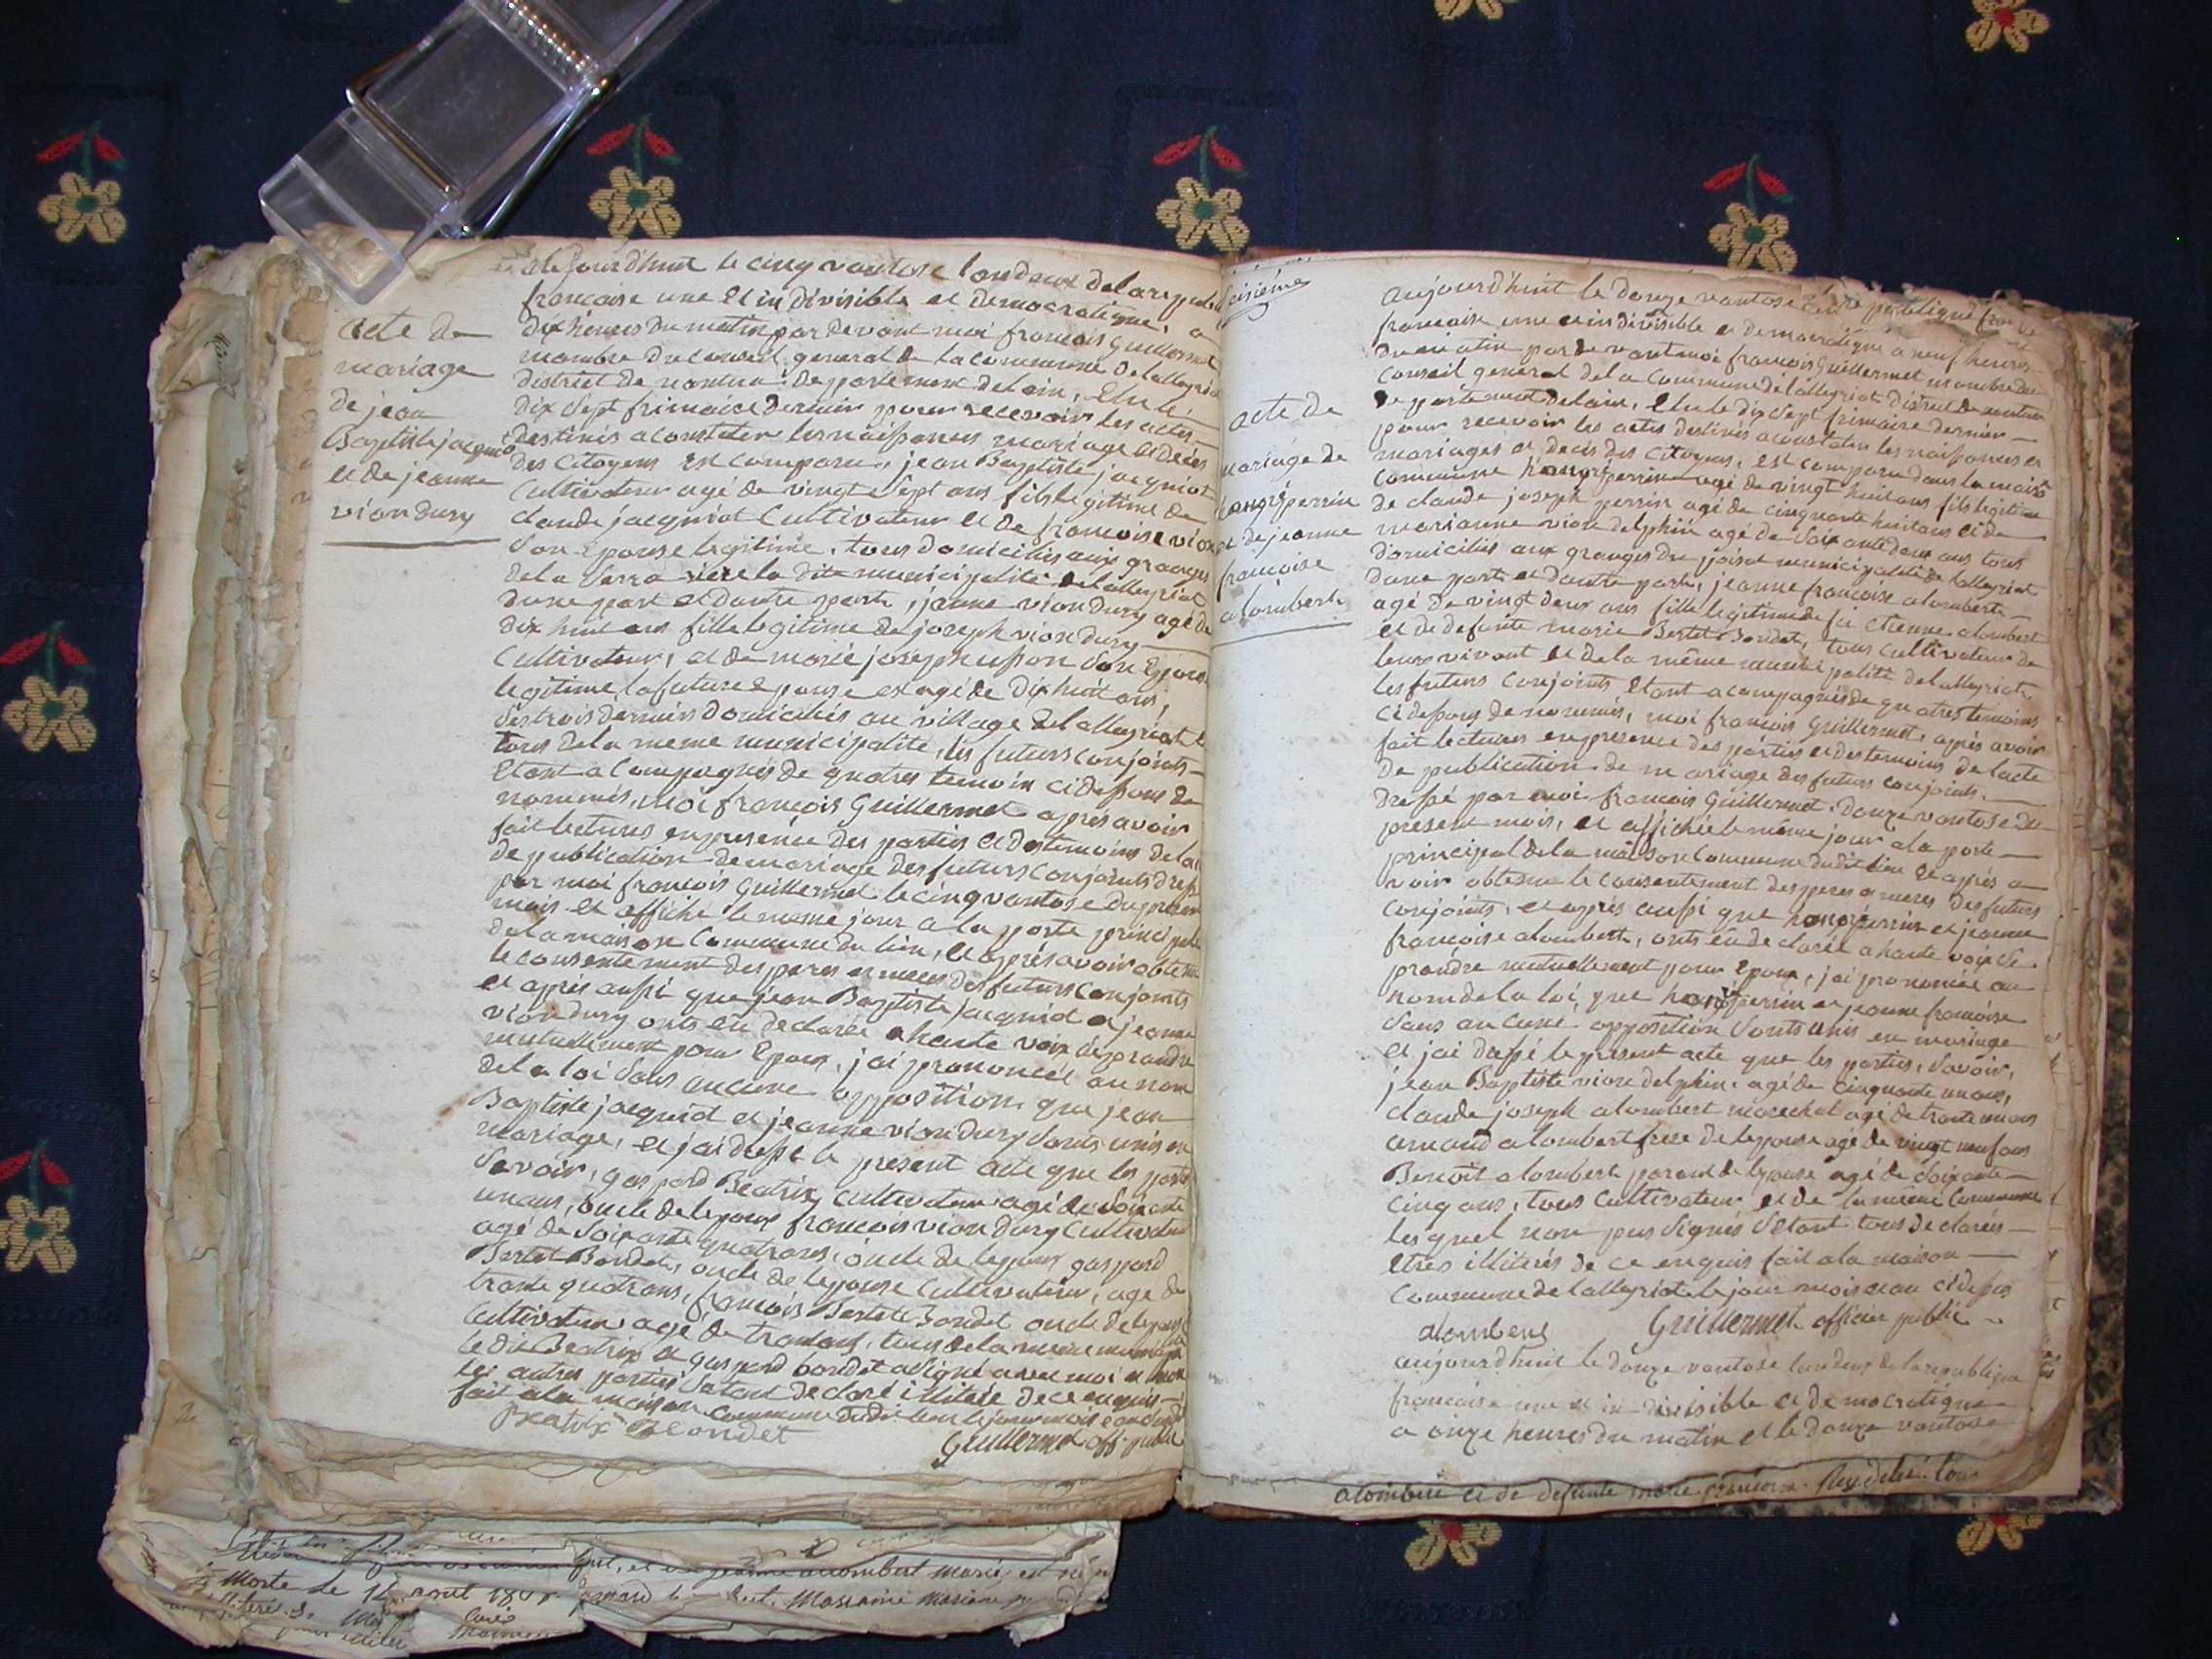 acte de
mariage
de jean
Baptiste jacquiot
et de jeanne
vion dury
aujourdhuit le cinq vantose landeux dela republi
francaise une et in divisible et democratique, a
dix heures du matin par devant moi francois Guillermet
membre du conseil general de la commune de lalleyriat
district de nantua departement delain, Elu le
dix sept frimaire dernier pour recevoir les actes
destinés a constater les naissances mariage et décés
des citoyens est comparu, jean Baptiste jacquiot
cultivateur agé de vingt sept ans fils legitime de
claude jacquiot cultivateur et de francoise vion
son Epouse legitime, tous domiciliés aux granges
de la Serra riere la dite municipalité de lalleyriat
dune part et dautre part, jeanne vion dury agé de
dix huit ans fille legitime de joseph vion dury
cultivateur, et de marie joseph upson son Epouse
legitime, la future epouse est agé de dix huit ans,
les trois derniers domiciliés au village de lalleyriat
tous dela meme municipalite, les futurs conjoints
Etant acompagnés de quatres temoin ci dessous de
nommés, moi francois Guillermet après avoir
fait lectures en presence des parties et des temoins de la
de publication de mariage des futurs conjoints dressé
par moi francois Guillermet le cinq vantose du present
mois et affiché le meme jour a la porte principale
de la maison commune du lieu, et après avoir obtenu
le consentement des peres et meres des futurs conjoints
et après aussi que jean Baptiste jacquiot et jeanne
vion dury onts eü declarée a haute voix se prandre
mutuellement pour Epoux, j'ai prononcéé au nom
de la loi sans aucune opposition que jean
Baptiste jacquiot et jeanne vion dury sonts unis en
mariage, et jai dressé le present acte que les parties
Savoir, gaspard Beatrix cultivateur agé de soixante
un ans, oncle de lepoux francois vion dury cultivateur
agé de soixante quatre ans, oncle de lepoux gaspard
Bertet Bondet, oncle de lepouse cultivateur, agé de
trante quatrans, francois Bertet Bondet oncle de lepouse
cultivateur agé de trantans, tous dela meme municipa
le dit Beatrix et gaspard bondet a signé avec moi et non
les autres parties Setant declaré illiteré de ce enquis
fait a la maison commune dudit lieu le jour mois et an
Beatrix Bondet
Guillermet off. public
seiziéme
acte de
mariage de
honoré perrin
et de jeanne
francoise
alombert
aujourdhuit le douze vantose
francaise une et indivisible et democratique a neuf heures
du matin par de vant moi francois Guillermet membre du
conseil general dela commune de lalleyriat district de nantua
departement delain, Elu le dix sept frimaire dernier
pour recevoir les actes destinés a constater les naissances et
mariages et decés des citoyens, est comparu dans la maison
commune honoré perrin agé de vingt huit ans fils legitime
de claude joseph perrin agé de cinquante huit ans et de
marianne vion delphin agé de soixante deux ans tous
domiciliés aux granges du poisat municipalité de lalleyriat
dune part, et dautre part, jeanne francoise alombert
agé de vingt deux ans fille legitime de fü etienne alombert
et de defunte marie Bertet Bondet, tous cultivateur de
leurs vivant et de la même municipalité de lalleyriat
les futurs conjoints Etant acompagnés de quatres temoins
ci dessous de nommés, moi francois Guillermet, après avoir
fait lectures en presence des parties et des temoins de lacte
de publication de mariage des futurs conjoints,
dressé par moi francois Guillermet, douze vantose du
present mois, et affichée le même jour a la porte
principal de la maison commune dudit lieu et après a
voir obtenu le consentement des peres et meres des futurs
conjoints, et après aussi que honoré perrin et jeanne
francoise alombert, onts eü declarée a haute voix se
prandre mutuellement pour Epoux, jai prononcéé au
nom de la loi, que honoré perrin et jeanne francoise
sans aucune opposition sonts unis en mariage
et jai dressé le present acte que les parties, savoir,
jean Baptiste vion delphin agé de cinquante un ans,
claude joseph alombert marechal agé de trante un ans
armand alombert frere de lepouse agé de vingt neuf ans
Benoit alombert parant de lepouse agé de soixante
cinq ans, tous cultivateur et de la même commune
lesquel non pas signés Setant tous declarés
Etres illiterés de ce enquis fait a la maison
commune de lalleyriat le jour mois et an ci dessus
alombert Guillermet officier public
aujourdhuit le douze vantose landeux de la republique
francaise une et in divisible et democratique
a onze heures du matin et le douze vantose
alombert et de defunte marie
alombert marié est
Morte le 14 aout